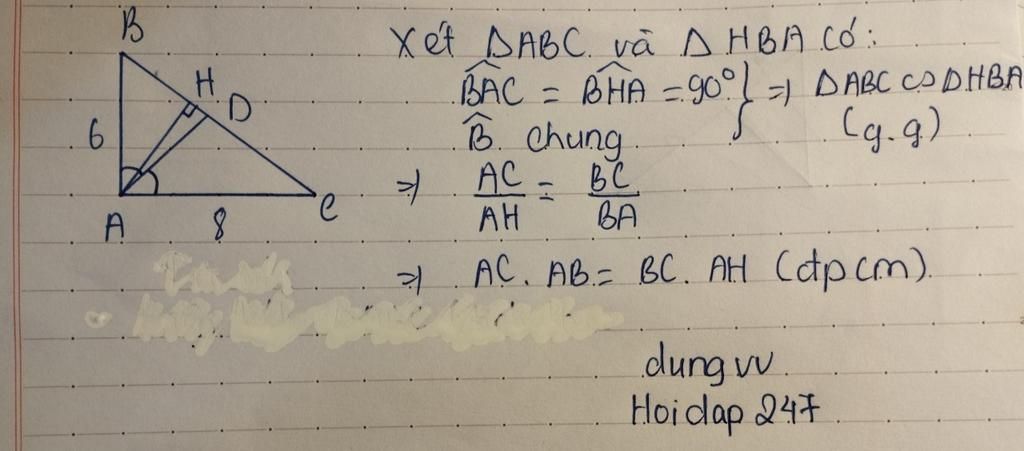 B
H
D
6
A
8
C
Xét ΔABC và ΔHBA có:
BAC = BHA = 90° } => ΔABC ∽ ΔHBA
B chung (g.g)
=> AC/AH = BC/BA
=> AC. AB = BC. AH (đpcm).
dung vv
Hoidap 247